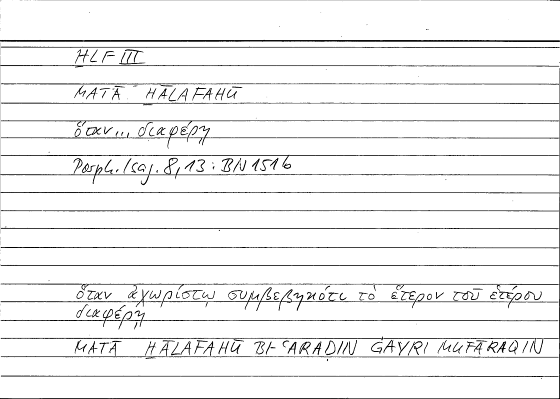 ḪLF III
MATĀ ḪĀLAFAHŪ
ὅταν... διαφέρῃ
Porph. Isag. 8, 13 : BN 151b
ὅταν ἀχωρίστῳ συμβεβηκότι τὸ ἕτερον τοῦ ἑτέρου
διαφέρῃ
MATĀ ḪĀLAFAHŪ BI-ʿARAḌIN ĠAYRI MUFĀRAQIN